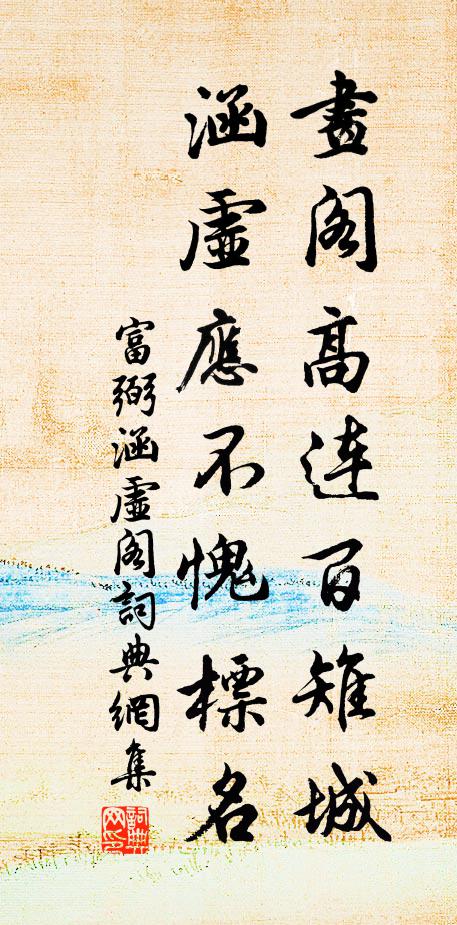 畫閣高連百雉城
涵虛應不愧標名
富弼涵虛閣詞典網集
詞典网印